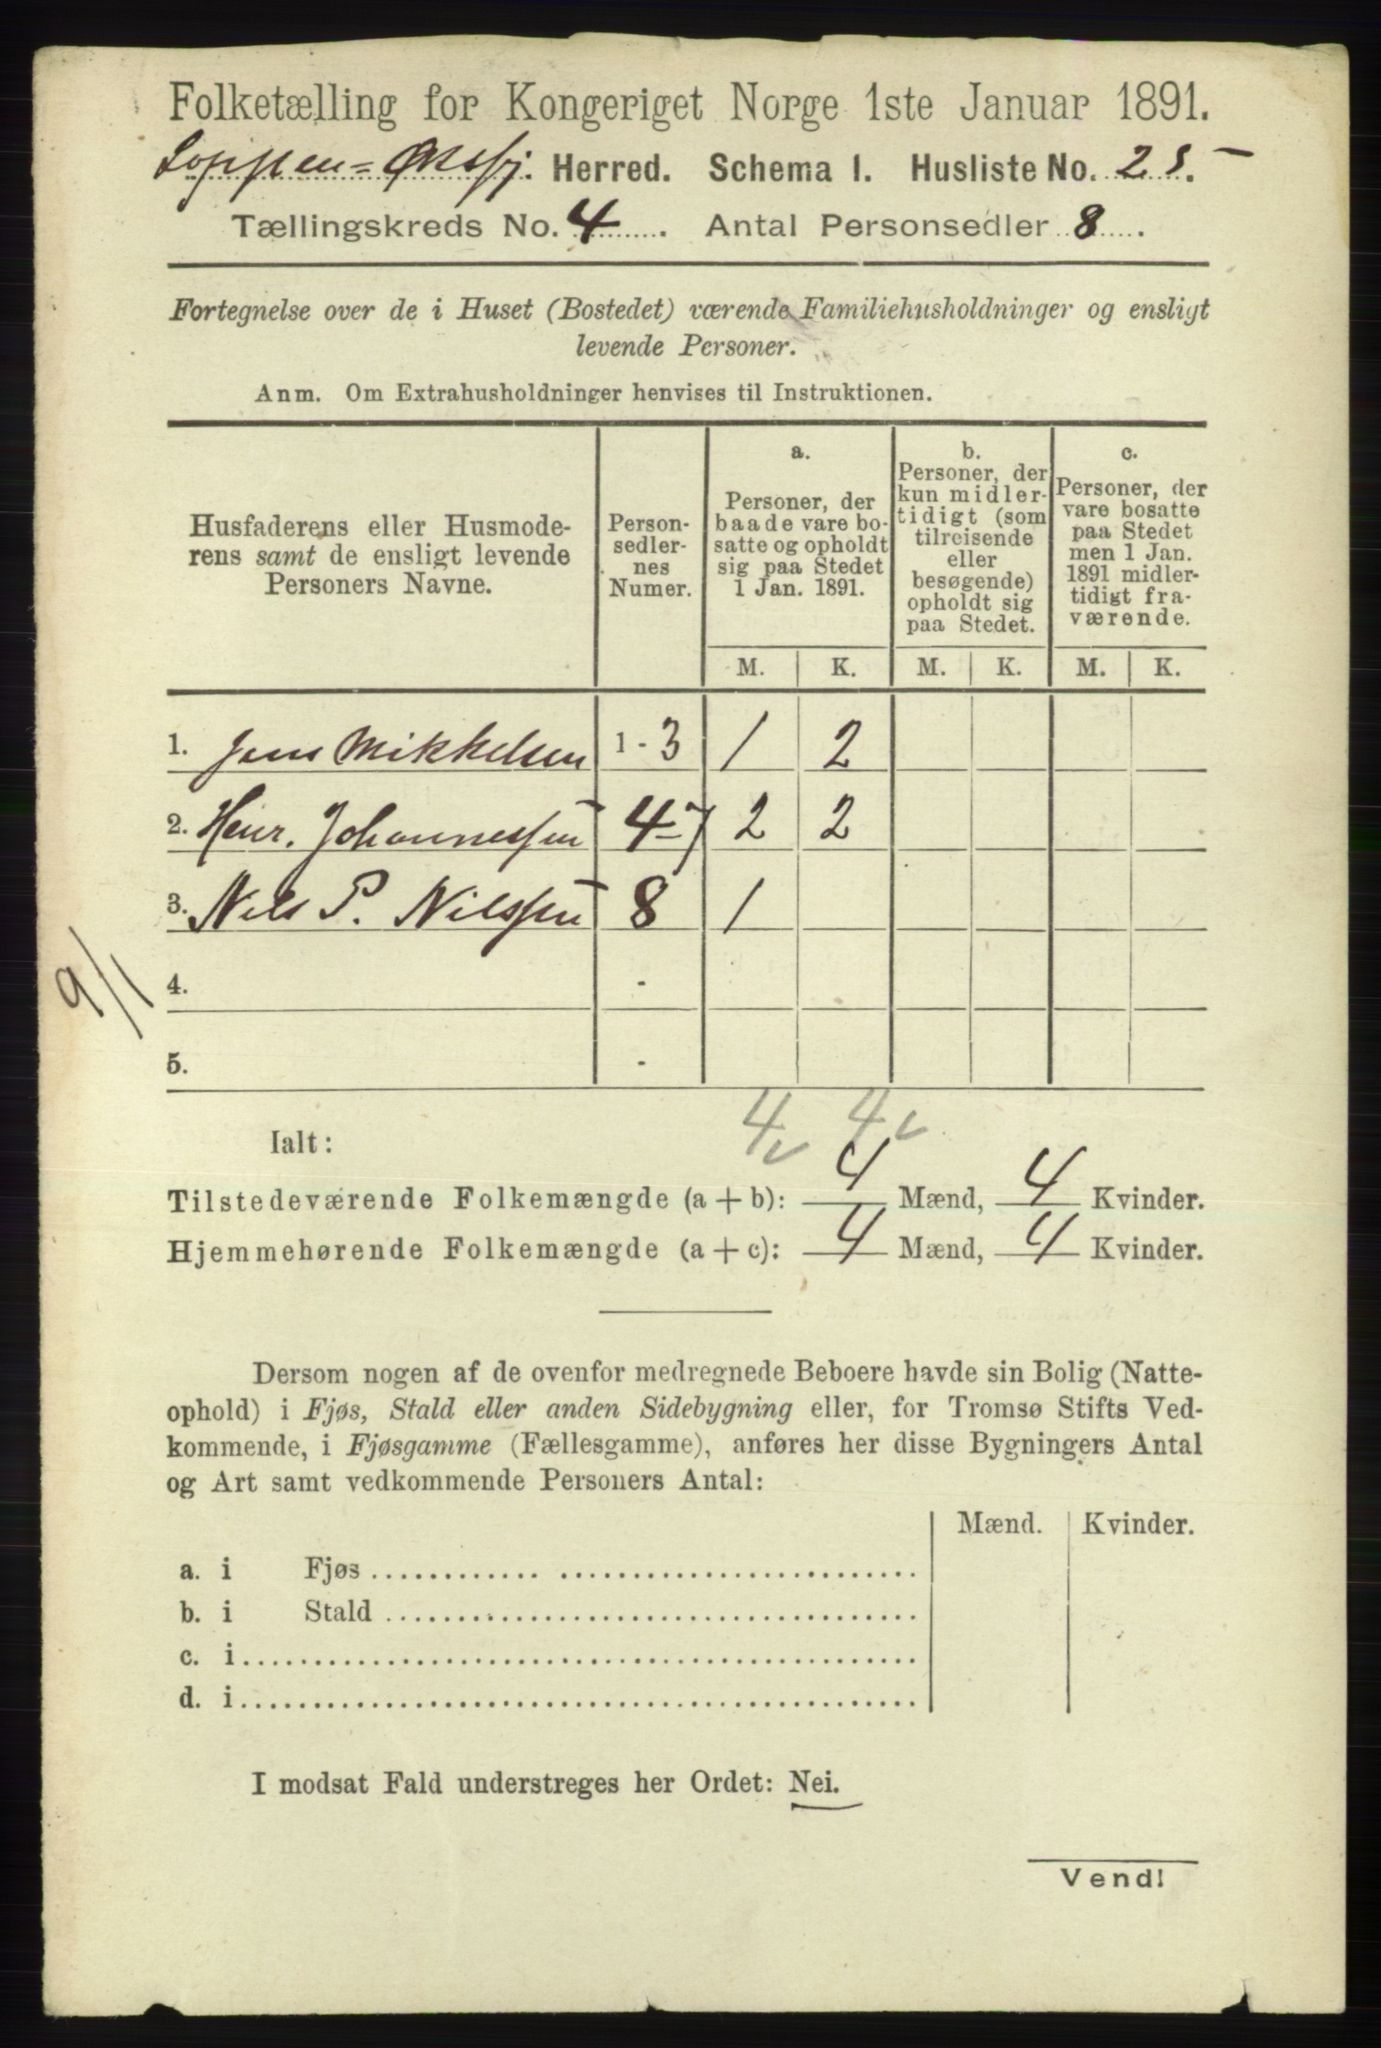 Folketælling for Kongeriget Norge 1ste Januar 1891.
Loppen=Øksfj. Herred. Schema I. Husliste No. 25.
Tællingskreds No. 4. Antal Personsedler 8.
Fortegnelse over de i Huset (Bostedet) værende Familiehusholdninger og ensligt
levende Personer.
Anm. Om Extrahusholdninger henvises til Instruktionen.
Husfaderens eller Husmode-
rens samt de ensligt levende
Personers Navne.
Person-
sedler-
nes
Numer.
a.
Personer, der
baade vare bo-
satte og opholdt
sig paa Stedet
1 Jan. 1891.
b.
Personer, der
kun midler-
tidigt (som
tilreisende
eller
besøgende)
opholdt sig
paa Stedet.
c.
Personer, der
vare bosatte
paa Stedet
men 1 Jan.
1891 midler-
tidigt fra-
værende.
M. K. M. K. M. K.
1. Jens Mikkelsen 1-3 1 2
2. Henr. Johannessen 4-7 2 2
3. Nils P. Nilssen 8 1
9/1
4. -
5. -
4 4
Ialt:
Tilstedeværende Folkemængde (a + b): 4 Mænd, 4 Kvinder.
Hjemmehørende Folkemængde (a + c): 4 Mænd, 4 Kvinder.
Dersom nogen af de ovenfor medregnede Beboere havde sin Bolig (Natte-
ophold) i Fjøs, Stald eller anden Sidebygning eller, for Tromsø Stifts Ved-
kommende, i Fjøsgamme (Fællesgamme), anføres her disse Bygningers Antal
og Art samt vedkommende Personers Antal:
Mænd. Kvinder.
a. i Fjøs
b. i Stald
c. i
d. i
I modsat Fald understreges her Ordet: Nei.
Vend!